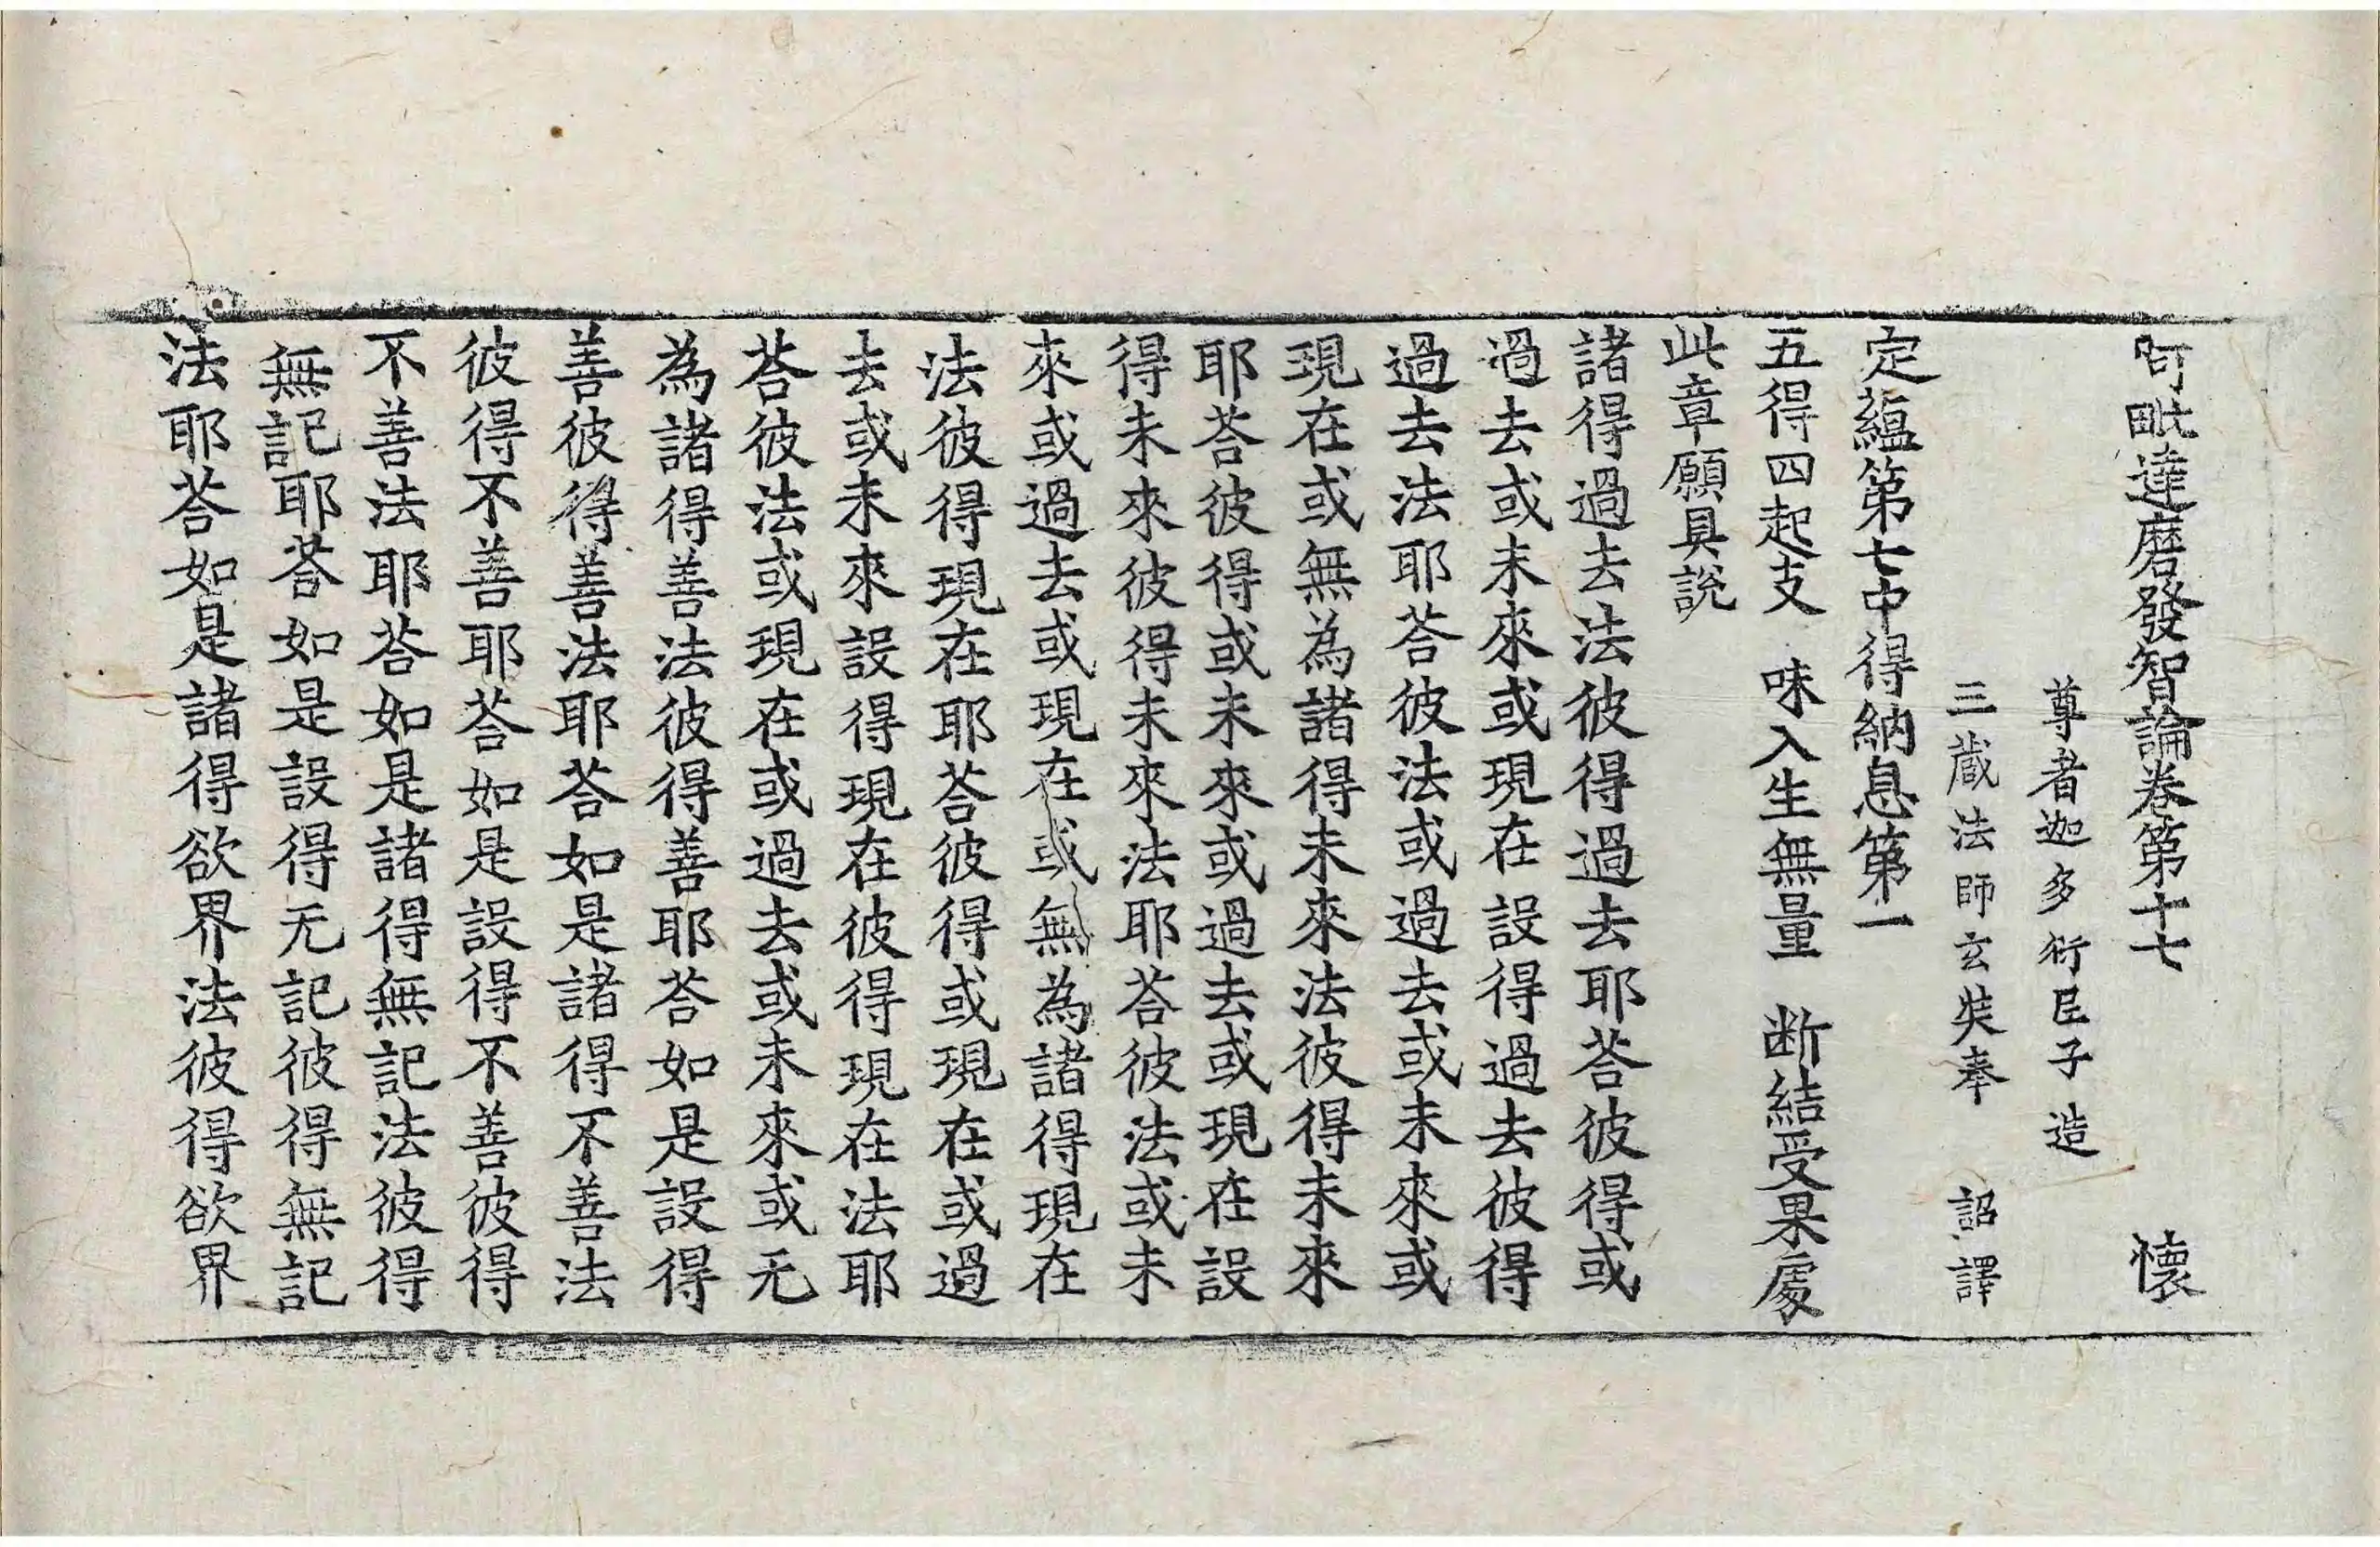 阿毗達磨發智論卷第十七 懷
尊者迦多衍尼子造
三藏法師玄奘奉 詔譯
定蘊第七中得納息第一
五得四起支 味入生無量 断結受果處
此章願具說
諸得過去法彼得過去耶荅彼得或
過去或未來或現在設得過去彼得
過去法耶荅彼法或過去或未來或
現在或無為諸得未來法彼得未來
耶荅彼得或未來或過去或現在設
得未來彼得未來法耶荅彼法或未
來或過去或現在或無為諸得現在
法彼得現在耶荅彼得或現在或過
去或未來設得現在彼得現在法耶
荅彼法或現在或過去或未來或无
為諸得善法彼得善耶荅如是設得
善彼得善法耶荅如是諸得不善法
彼得不善耶荅如是設得不善彼得
不善法耶荅如是諸得無記法彼得
無記耶荅如是設得无記彼得無記
法耶荅如是諸得欲界法彼得欲界